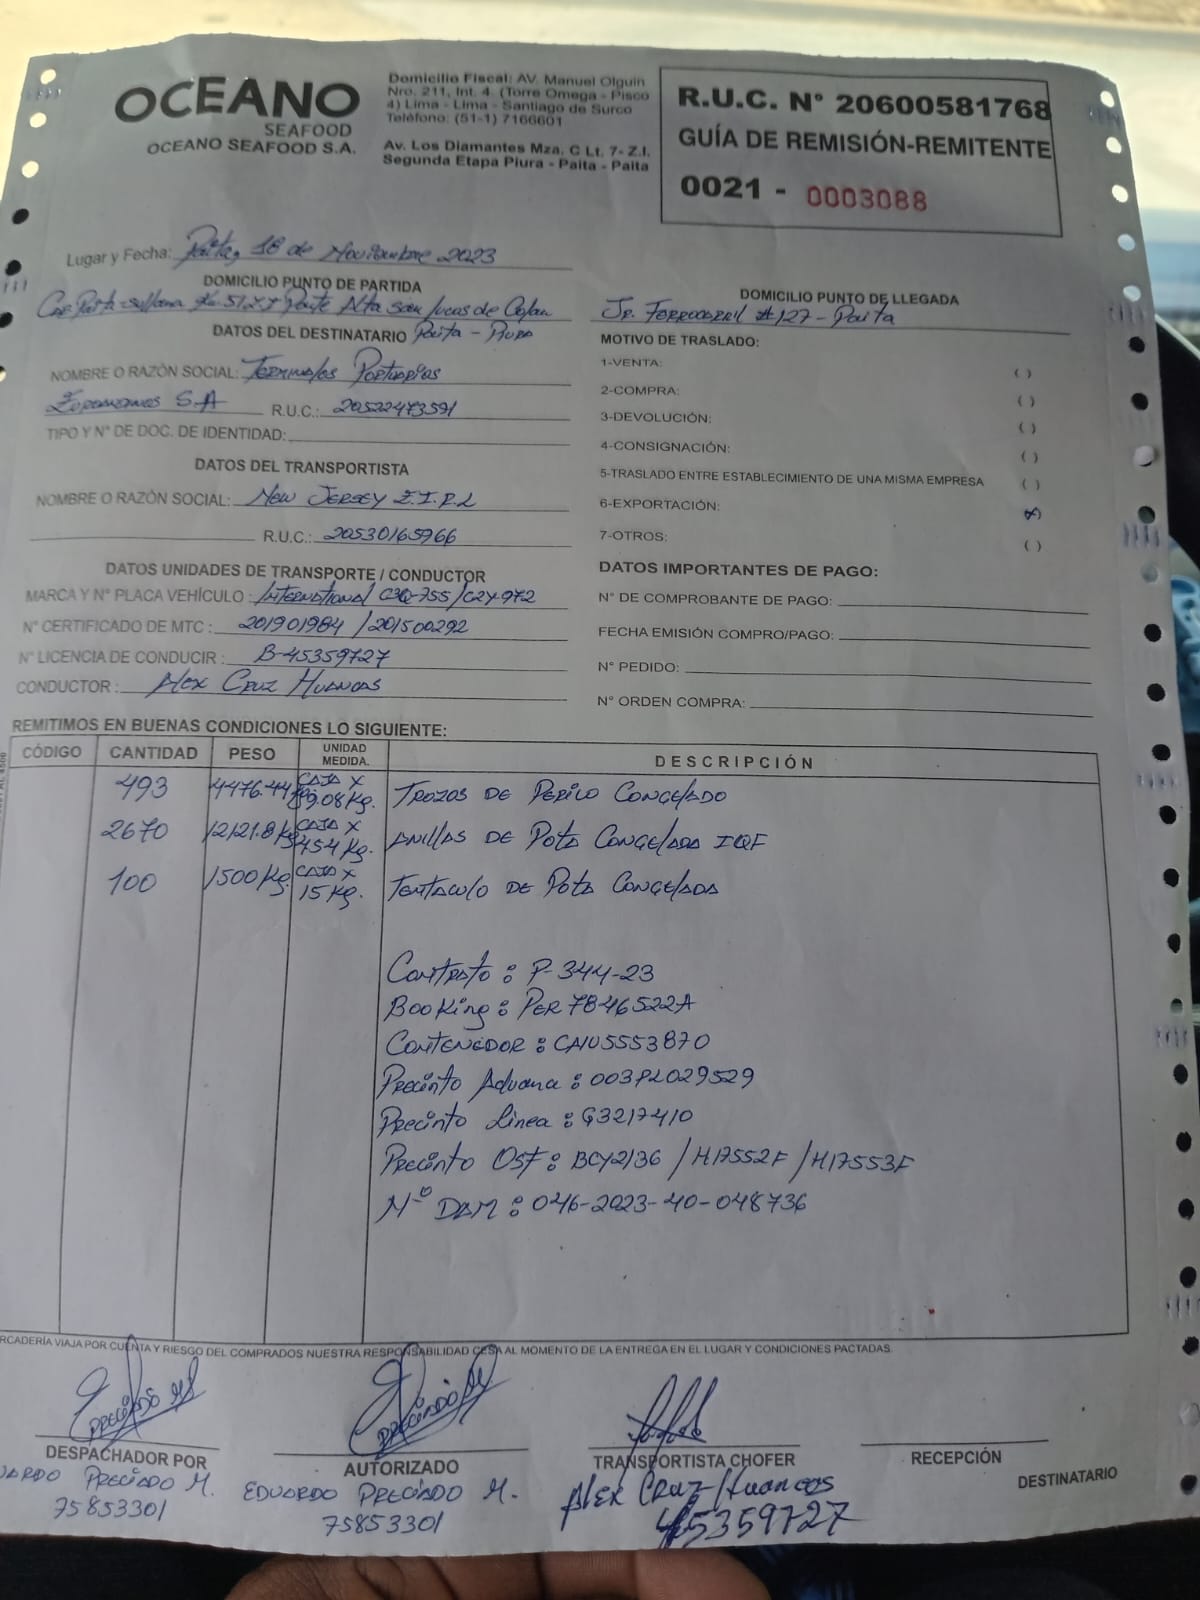 OCEANO
SEAFOOD
OCEANO SEAFOOD S.A.
Domicilio Fiscal: AV. Manuel Olguin
Nro. 211, Int. 4 (Torre Omega - Pisco
4) Lima - Lima - Santiago de Surco
Teléfono: (51-1) 7166601
Av. Los Diamantes Mza, C Lt. 7- Z.I.
Segunda Etapa Piura - Paita - Paita
R.U.C. N° 20600581768
GUÍA DE REMISIÓN-REMITENTE
0021 - 0003088
Lugar y Fecha: Paita, 18 de Noviembre 2023
DOMICILIO PUNTO DE PARTIDA
Car Paita-sullana Km 51.27 Parte Alta san lucas de Colan
Paita - Piura
DOMICILIO PUNTO DE LLEGADA
Jr. Ferrocarril #127 - Paita
DATOS DEL DESTINATARIO
NOMBRE O RAZÓN SOCIAL: Terminales Portuarios
Euroandinos S.A R.U.C.: 20522473591
TIPO Y N° DE DOC. DE IDENTIDAD:
DATOS DEL TRANSPORTISTA
NOMBRE O RAZÓN SOCIAL: New Jersey E.I.R.L
R.U.C.: 20530165966
DATOS UNIDADES DE TRANSPORTE / CONDUCTOR
MARCA Y N° PLACA VEHÍCULO: International C3Q-755 / C2Y-972
N° CERTIFICADO DE MTC: 201901984 / 201500292
N° LICENCIA DE CONDUCIR: B-45359727
CONDUCTOR: Alex Cruz Huancas
MOTIVO DE TRASLADO:
1-VENTA: ( )
2-COMPRA: ( )
3-DEVOLUCIÓN: ( )
4-CONSIGNACIÓN: ( )
5-TRASLADO ENTRE ESTABLECIMIENTO DE UNA MISMA EMPRESA ( )
6-EXPORTACIÓN: (x)
7-OTROS: ( )
DATOS IMPORTANTES DE PAGO:
N° DE COMPROBANTE DE PAGO:
FECHA EMISIÓN COMPRO/PAGO:
N° PEDIDO:
N° ORDEN COMPRA:
REMITIMOS EN BUENAS CONDICIONES LO SIGUIENTE:
CÓDIGO CANTIDAD PESO UNIDAD MEDIDA. DESCRIPCIÓN
493 4476.44 Kg Caja x 9.08 Kg. Trozos de Perico Congelado
2670 12121.8 Kg Caja x 4.54 Kg. Anillas de Pota Congelada IQF
100 1500 Kg. Caja x 15 Kg. Tentaculo de Pota Congelada
Contrato: P-344-23
Booking: PER7846522A
Contenedor: CAIU5553870
Precinto Aduana: 003PL029529
Precinto Linea: G3217410
Precinto Osf: BCY2136 / H17552F / H17553F
N° DAM: 046-2023-40-048736
RCADERÍA VIAJA POR CUENTA Y RIESGO DEL COMPRADOS NUESTRA RESPONSABILIDAD CESA AL MOMENTO DE LA ENTREGA EN EL LUGAR Y CONDICIONES PACTADAS.
DESPACHADOR POR
UARDO PRECIADO M.
75853301
AUTORIZADO
EDUARDO PRECIADO M.
75853301
TRANSPORTISTA CHOFER
Alex Cruz Huancas
45359727
RECEPCIÓN
DESTINATARIO